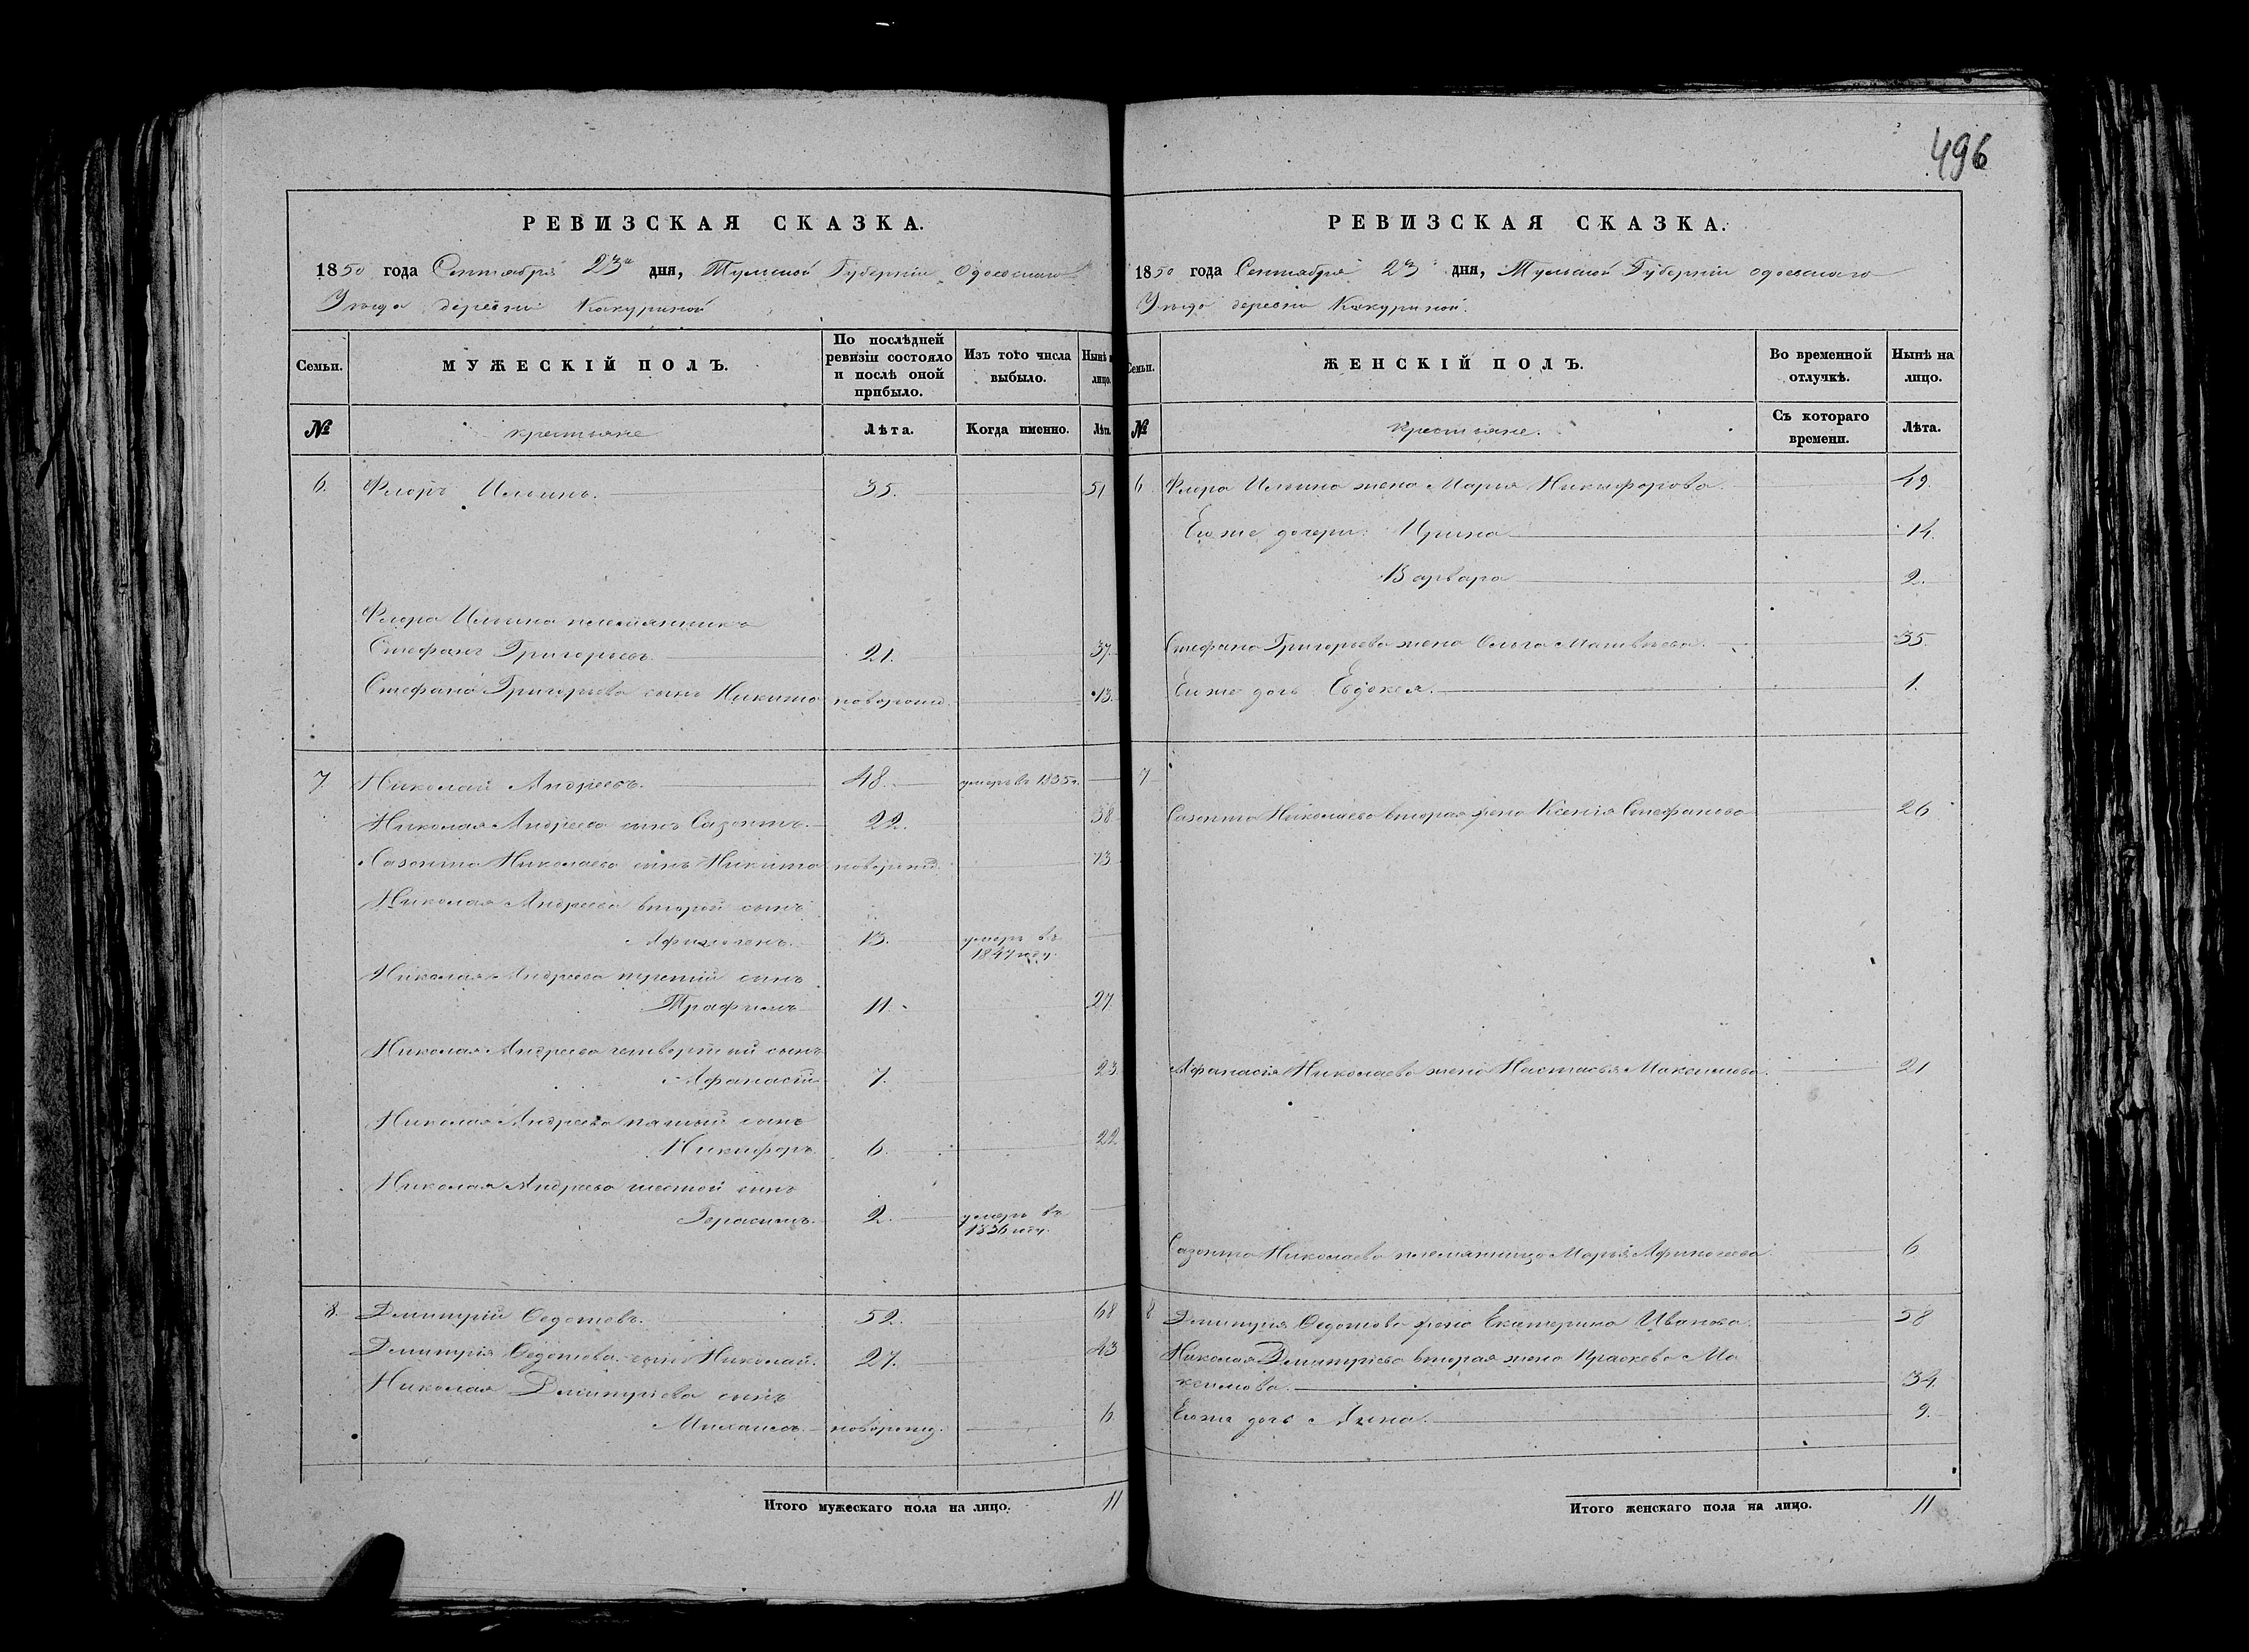 496
РЕВИЗСКАЯ СКАЗКА.
1850 года Сентября 23го дня, Тульской Губернии Одоевскаго
Уезда деревни Какуриной
Семьи.
МУЖЕСКІЙ ПОЛЪ.
По послѣдней ревизіи состояло и послѣ оной прибыло.
Изъ того числа выбыло.
Нынѣ на лицо.
№
крестьяне
Лѣта.
Когда именно.
Лѣта.
6. Флоръ Ильинъ. 35. 51
Флора Ильина племянникъ
Стефанъ Григорьевъ. 21. 37.
Стефана Григорьева сынъ Никита новорожд. 13.
7. Николай Андреевъ. 48. умеръ въ 1835г.
Николая Андреева сынъ Сазонтъ. 22. 38
Сазонта Николаева сынъ Никита новорожд. 13
Николая Андреева второй сынъ
13. умеръ въ 1847 году.
Николая Андреева третій сынъ
Трафимъ 11. 27.
Николая Андреева четвертый сынъ
Афанасій 7. 23.
Николая Андреева пятый сынъ
Никифоръ 6. 22
Николая Андреева шестой сынъ
Герасимъ. 2. умеръ въ 1836 году.
8. Дмитрій Федотовъ. 52. 68
Дмитрія Федотова сынъ Николай. 27. 43
Николая Дмитріева сынъ
Михаилъ. новорожд. 6.
Итого мужескаго пола на лицо. 11
РЕВИЗСКАЯ СКАЗКА.
1850 года Сентября 23 дня, Тульской Губерніи Одоевскаго
Уезда деревни Какуриной.
Семьи.
ЖЕНСКІЙ ПОЛЪ.
Во временной отлучкѣ.
Нынѣ на лицо.
№
крестьяне.
Съ котораго времени.
Лѣта.
6. Флора Ильина жена Марья Никифорова. 49.
Ево же дочери: Ирина 14.
Варвара 2.
Стефана Григорьева жена Ольга Матвѣева. 35.
Ево же дочь Евдокея. 1.
7
Сазонта Николаева вторая жена Ксенія Стефанова 26
Афанасія Николаева жена Настасья Максимова. 21
Сазонта Николаева племянница Марья 6
8 Дмитрія Федотова жена Екатерина Иванова. 58
Николая Дмитріева вторая жена Прасковья Ма
ксимова. 34.
Ево же дочь Анна. 9.
Итого женскаго пола на лицо. 11